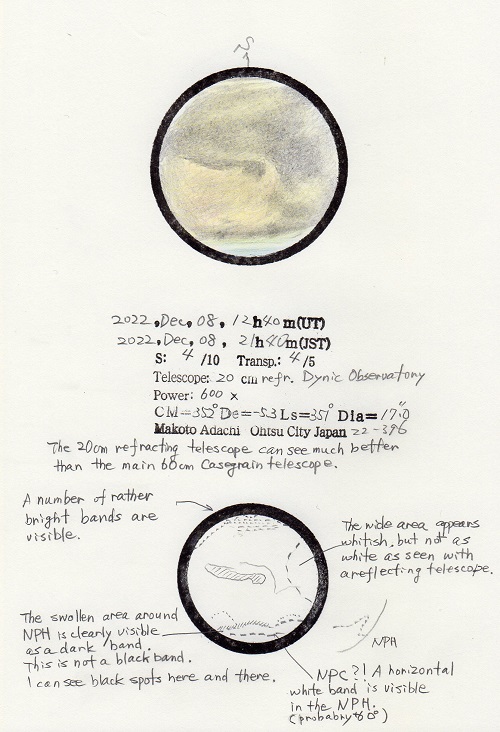 S
2022, Dec, 08, 12h40m(UT)
2022, Dec, 08, 21h40m(JST)
S: 4/10 Transp.: 4/5
Telescope: 20 cm refr. Dynic Observatory
Power: 600 x
CM=352° De=-5.3 Ls=351° Dia=17".0
Makoto Adachi Ohtsu City Japan 22-396
The 20cm refracting telescope can see much better
than the main 60cm Casegrain telescope.
A number of rather
bright bands are
visible.
The wide area appears
whitish, but not as
white as seen with
a reflecting telescope.
The swollen area around
NPH is clearly visible
as a dark band.
This is not a black band.
I can see black spots here and there.
NPH
NPC?! A horizontal
white band is visible
in the NPH.
(probabry 60°)